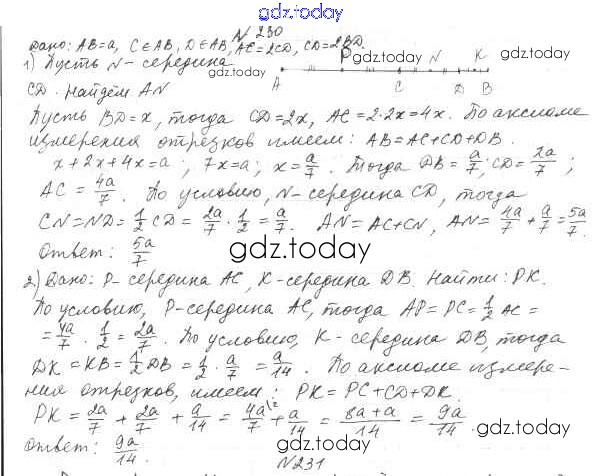 gdz.today
N 230
Дано: AB=a, C∈AB, D∈AB, AC=2CD, CD=2BD.
1) Пусть N-середина
CD. Найдем AN
A P C N D B K
gdz.today gdz.today
Пусть BD=x, тогда CD=2x, AC=2·2x=4x. По аксиоме
измерения отрезков имеем: AB=AC+CD+DB.
x+2x+4x=a; 7x=a; x=a/7. Тогда DB=a/7; CD=2a/7;
AC=4a/7. По условию, N-середина CD, тогда
CN=ND=1/2 CD=2a/7·1/2=a/7. AN=AC+CN, AN=4a/7+a/7=5a/7.
Ответ: 5a/7
gdz.today
2) Дано: P-середина AC, K-середина DB. Найти: PK.
По условию, P-середина AC, тогда AP=PC=1/2 AC=
=4a/7·1/2=2a/7. По условию, K-середина DB, тогда
DK=KB=1/2 DB=1/2·a/7=a/14. По аксиоме измере-
ния отрезков, имеем: PK=PC+CD+DK.
PK=2a/7+2a/7+a/14=4a\2/7+a/14=8a+a/14=9a/14.
gdz.today gdz.today
Ответ: 9a/14.
N 231